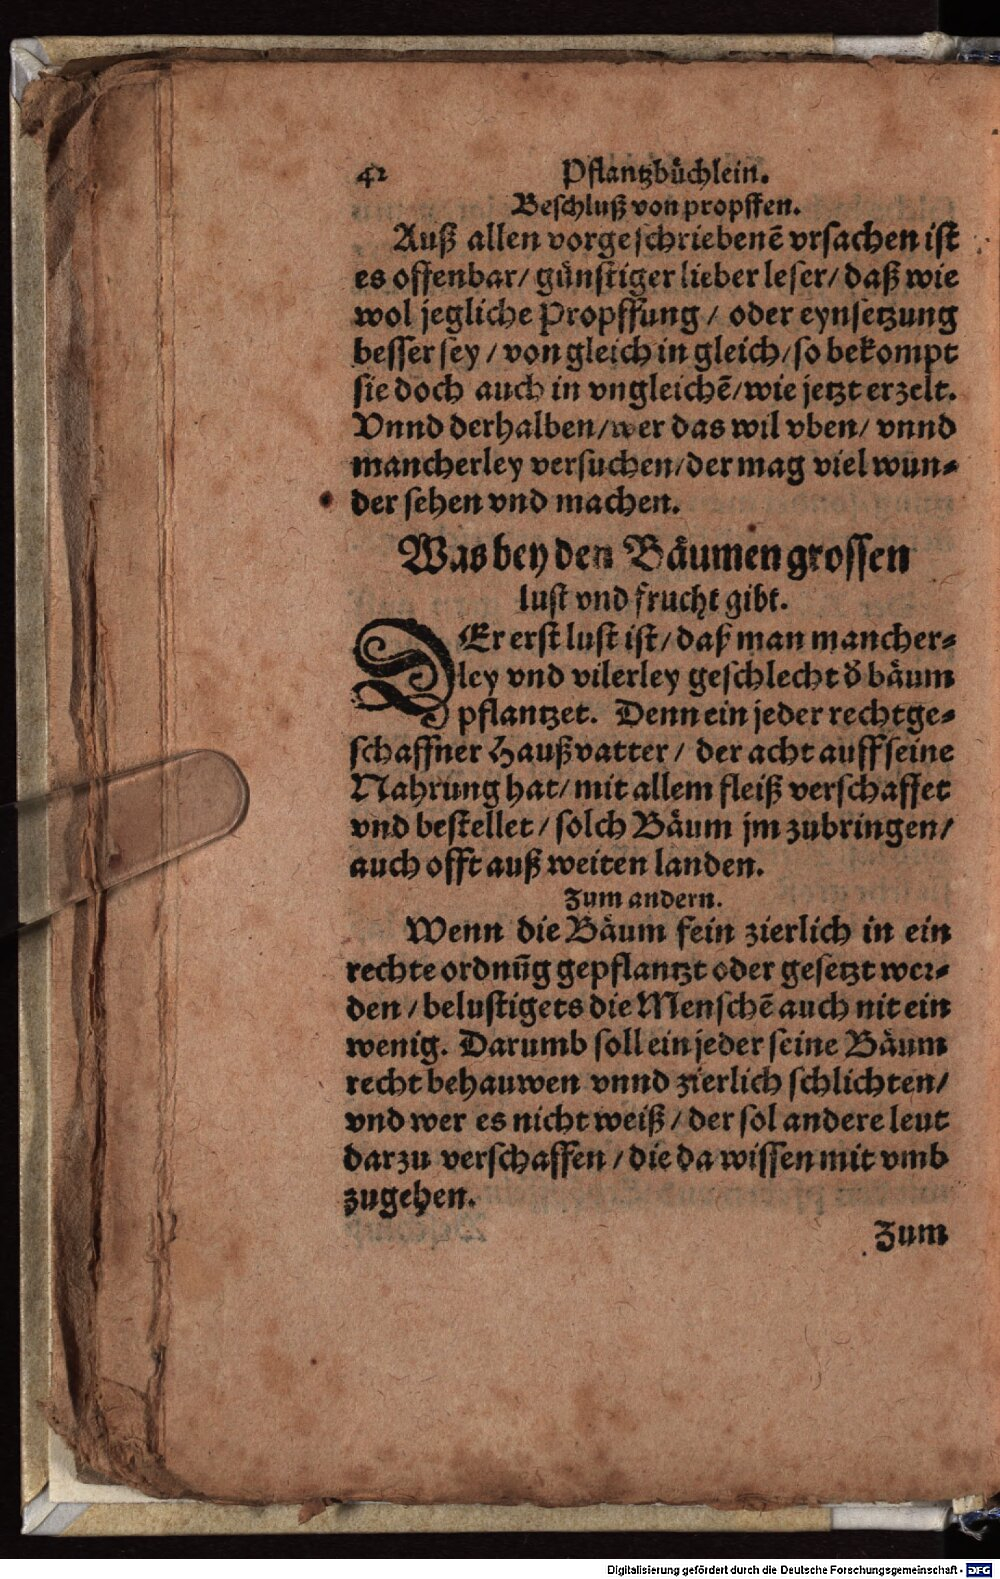 42 Pflantzbuͤchlein.
Beschluß von propffen.
Auß allen vorgeschriebenẽ vrsachen ist
es offenbar/ guͤnstiger lieber leser/ daß wie
wol jegliche Propffung / oder eynsetzung
besser sey / von gleich in gleich/so bekompt
sie doch auch in vngleichẽ/wie jetzt erzelt.
Vnnd derhalben/wer das wil vben/ vnnd
mancherley versuchen/der mag viel wun-
der sehen vnd machen.
Was bey den Baͤumen grossen
lust vnd frucht gibt.
DEr erst lust ist/ daß man mancher-
ley vnd vilerley geschlecht d̕ baͤum
pflantzet. Denn ein jeder rechtge-
schaffner Haußvatter / der acht auff seine
Nahrung hat/ mit allem fleiß verschaffet
vnd bestellet / solch Baͤum jm zubringen/
auch offt auß weiten landen.
Zum andern.
Wenn die Baͤum fein zierlich in ein
rechte ordnũg gepflantzt oder gesetzt wer-
den / belustigets die Menschẽ auch nit ein
wenig. Darumb soll ein jeder seine Baͤum
recht behauwen vnnd zierlich schlichten/
vnd wer es nicht weiß / der sol andere leut
darzu verschaffen / die da wissen mit vmb
zugehen.
Zum
Digitalisierung gefördert durch die Deutsche Forschungsgemeinschaft - DFG